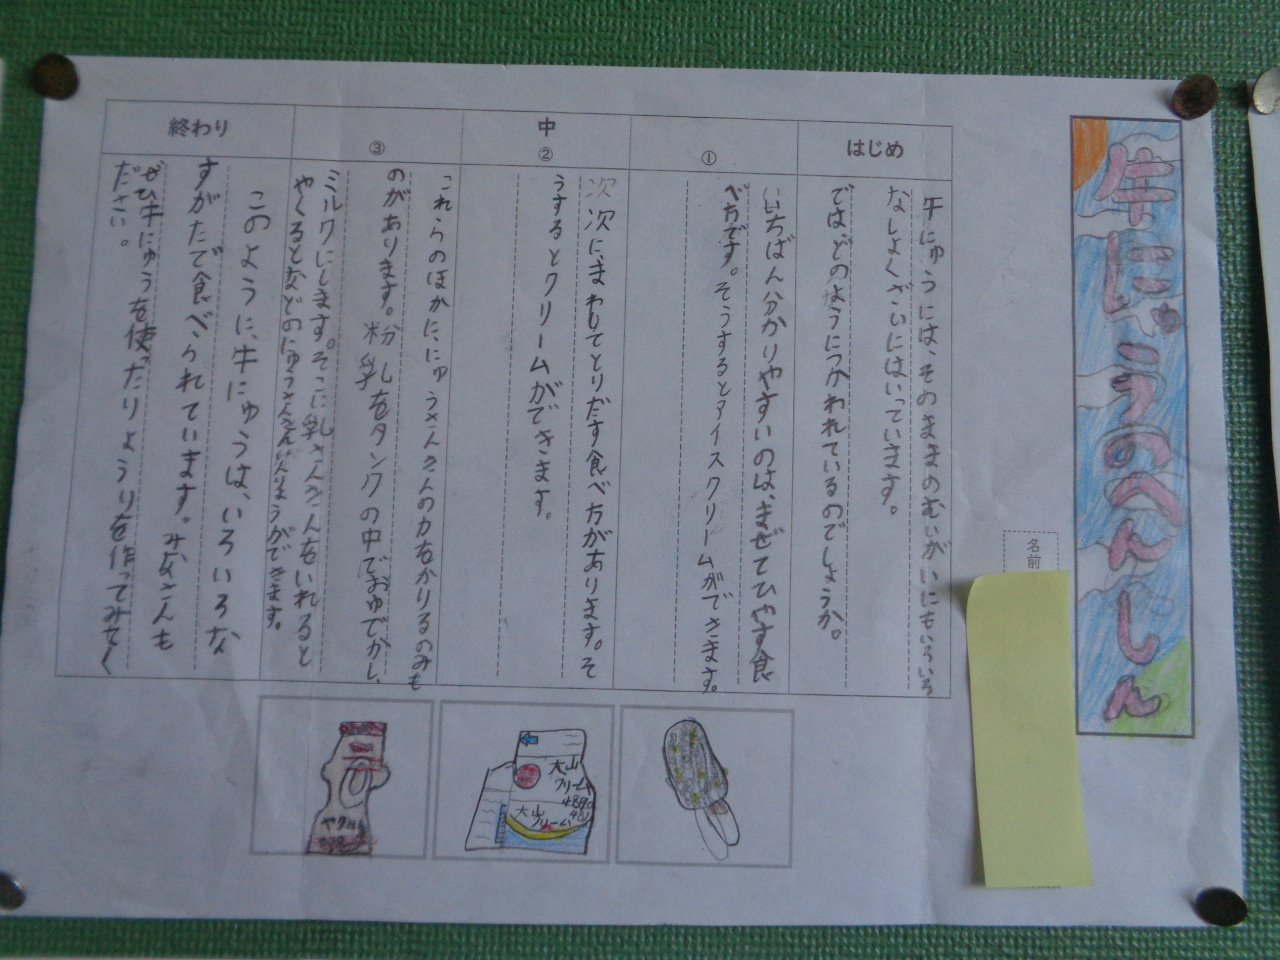 牛にゅうのへんしん
名前
はじめ
牛にゅうには、そのままのむいがいにもいろいろ
なしょくざいにはいっています。
ではどのようにつかわれているのでしょうか。
中
①
いちばん分かりやすいのは、まぜてひやす食
べ方です。そうするとアイスクリームができます。
②
次次に、まわしてとりだす食べ方があります。そ
うするとクリームができます。
③
これらのほかに、にゅうさんきんの力をかりるのみも
のがあります。粉乳をタンクの中でおゆでかし、
ミルクにします。そこに乳さんきんをいれると
やくるとなどのにゅうさんきんいんりょうができます。
終わり
このように、牛にゅうは、いろいろな
すがたで食べられています。みなさんも
ぜひ牛にゅうを使ったりょうりを作ってみてく
ださい。
ヤクルト
大山
クリーム
大山
クリーム